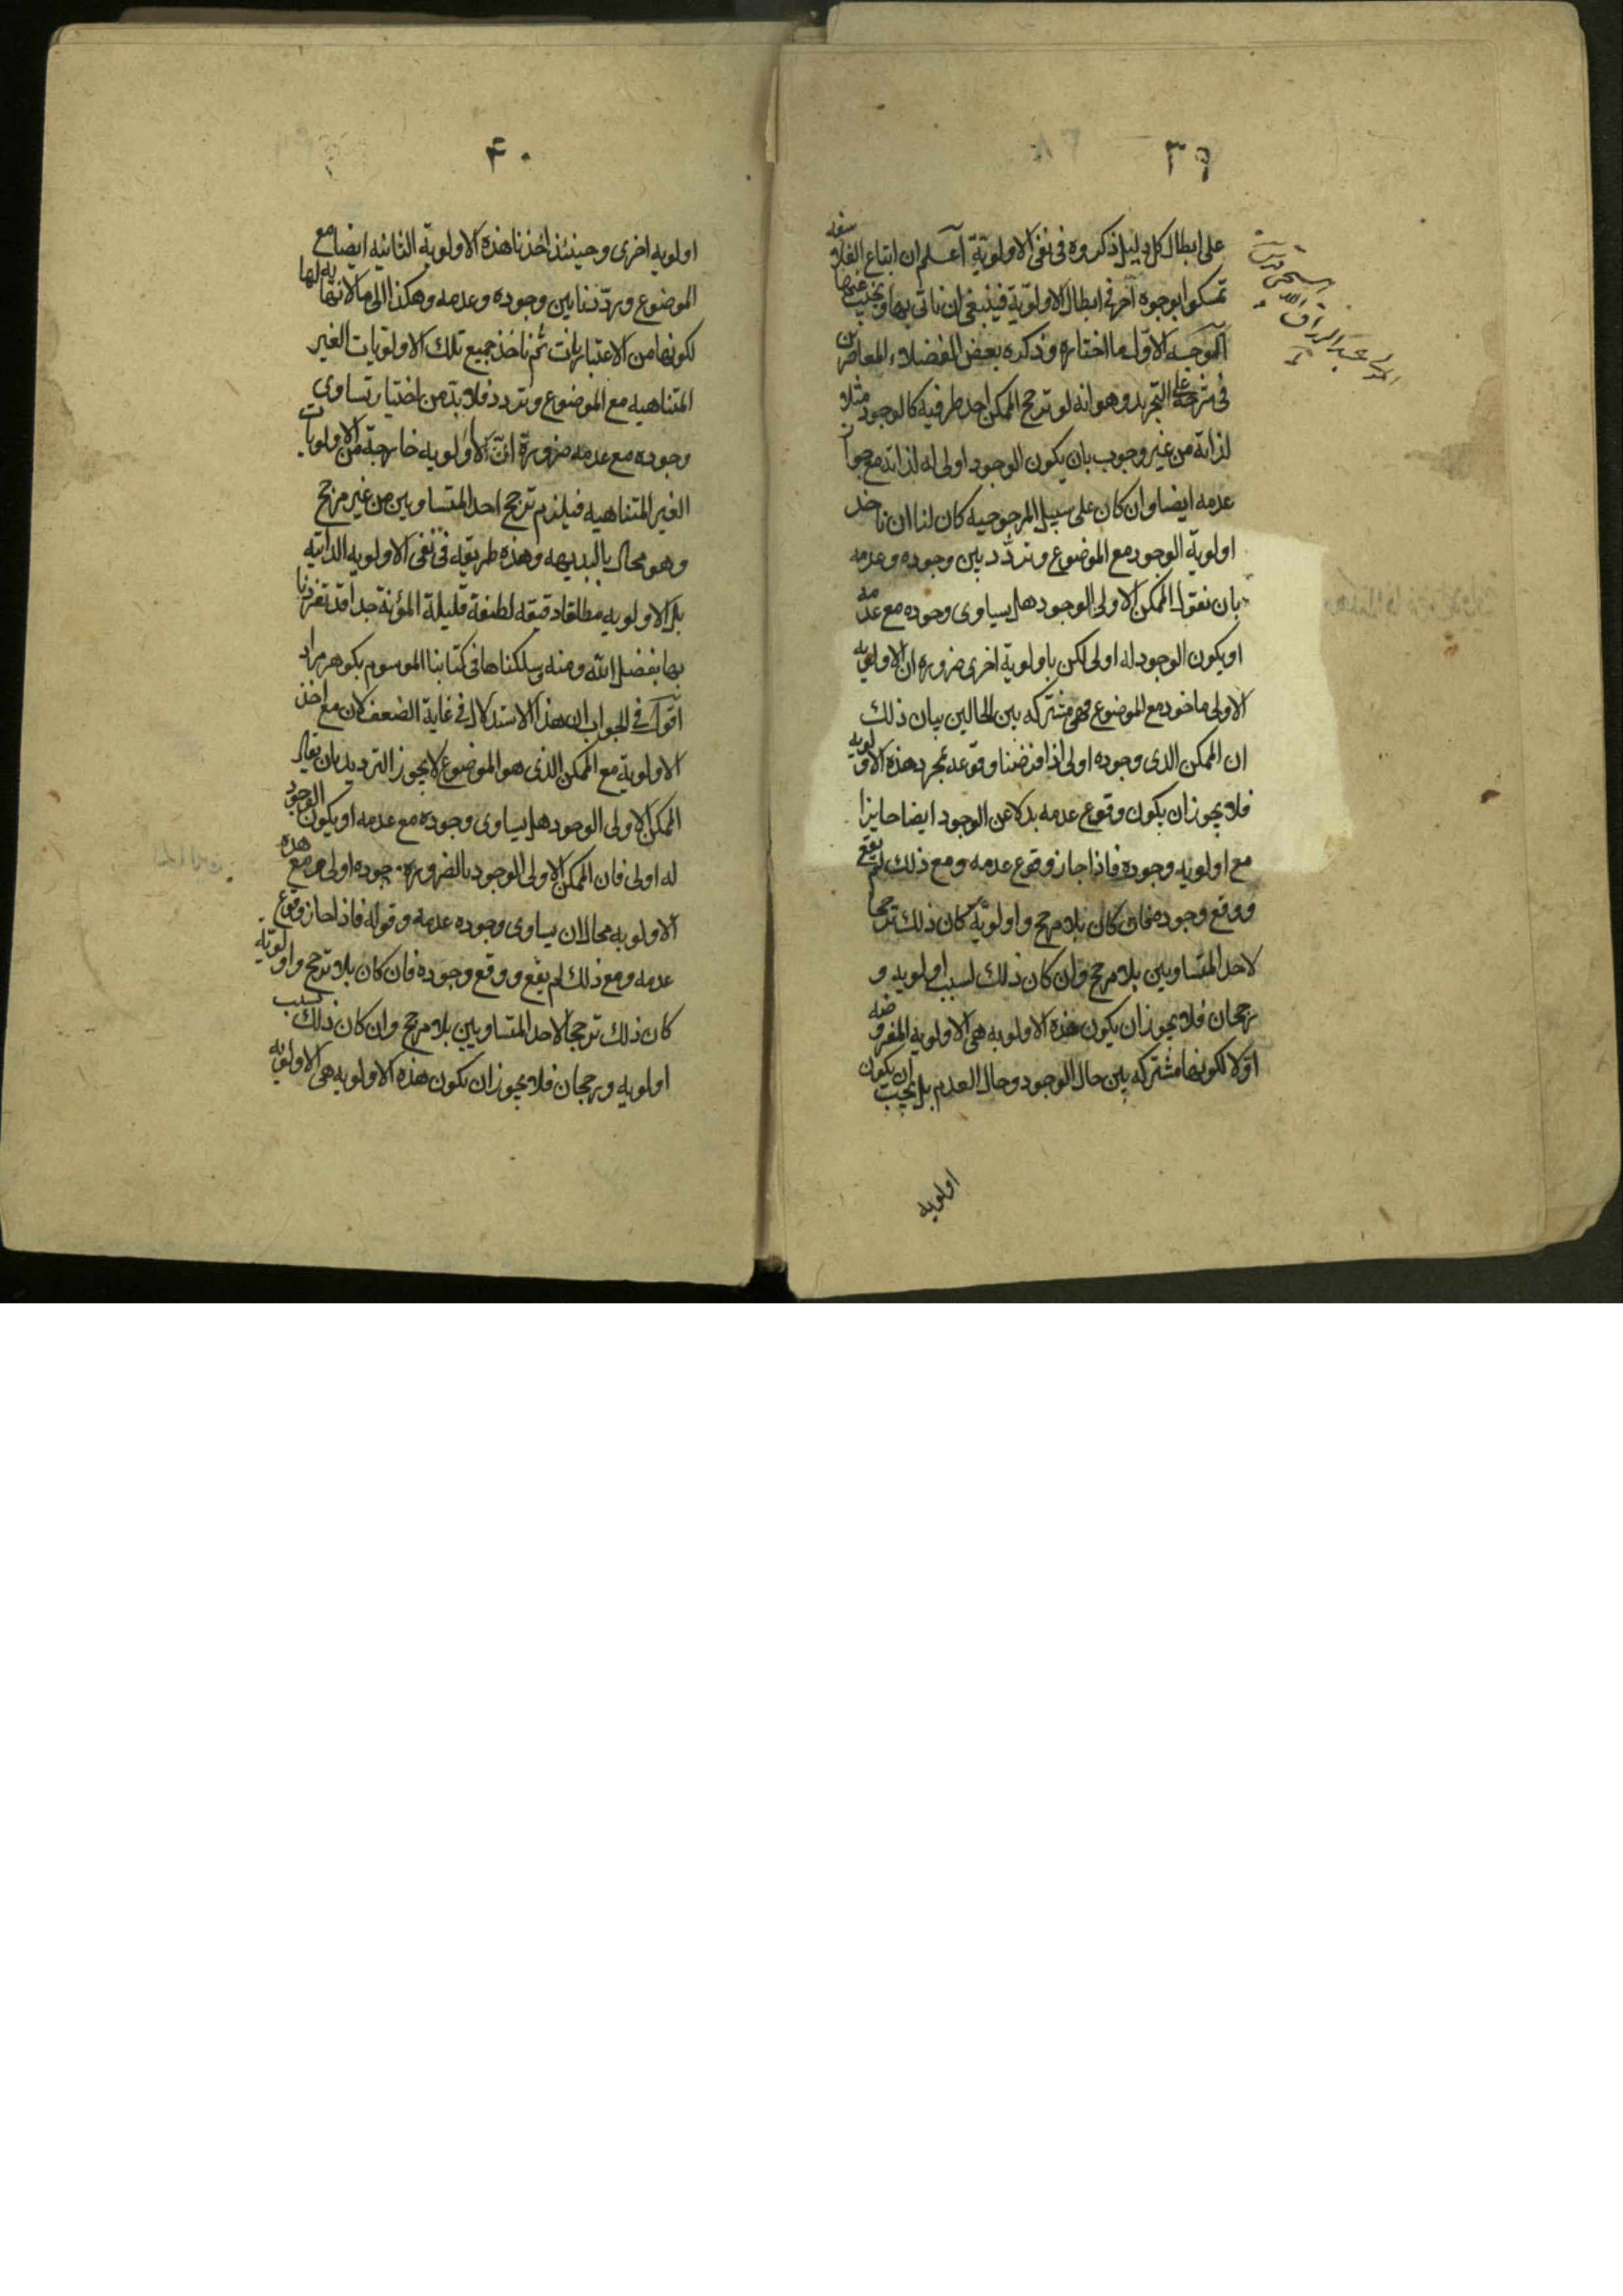 ٣٩
على ابطال كل دليل ذكروه فى نفى الاولوية آعلم ان اتباع الفلاسفه
تمسكوا بوجوه آخر فى ابطال الاولوية فينبغى ان ناتى بها ونجيب عنها
آلوجه الاوّل ما اختاره وذكره بعض الفضلاء المعاصرين
فى شرحه على التجريد وهو انه لو ترجح الممكن احد طرفيه كالوجود مثلا
لذاته من غير وجوب بان يكون الوجود اولى له لذاته مع جواز
عدمه ايضا وان كان على سبيل المرجوحيه كان لنا ان ناخذ
اولوية الوجود مع الموضوع ونردّد بين وجوده وعدمه
بان نقول الممكن الاولى الوجود هل يساوى وجوده مع عدمه
او يكون الوجود له اولى لكن باولوية اخرى ضروره ان الاولويه
الاولى ماخوذ مع الموضوع فهى مشتركه بين الحالين بيان ذلك
ان الممكن الذى وجوده اولى اذا فرضنا وقوعه بمجرد هذه الاولويه
فلا يجوز ان يكون وقوع عدمه بدلا عن الوجود ايضا جايزا
مع اولويه وجوده فاذا جاز وقوع عدمه ومع ذلك لم يقع
ووقع وجوده فان كان بلا مرجح واولويّة كان ذلك ترجحا
لاحد المتساويين بلا مرجح وان كان ذلك لسبب اولويه و
رجحان فلا يجوز ان يكون هذه الاولويه هى الاولويه المفروضه
اوّلا لكونها مشتركه بين حال الوجود وحال العدم بل يجب ان يكون
اولويه
المولى عبد الرزاق
٤٠
اولويه اخرى وحينئذ اخذنا هذه الاولوية الثانيه ايضا مع
الموضوع وردّدنا بين وجوده وعدمه وهكذا الى ما لا نهايه لها
لكونها من الاعتباريات ثم ناخذ جميع تلك الاولويات الغير
المتناهيه مع الموضوع ونردد فلا بدّ من اختيار تساوى
وجوده مع عدمه ضرورة انّ الاولويه خارجة من الاولويات
الغير المتناهيه فيلزم ترجح احد المتساويين من غير مرجح
وهو محال بالبديهه وهذه طريقه فى نفى الاولويه الذاتيه
بل الاولويه مطلقا دقيقه لطيفة قليلة المؤنة جدا قد تفردنا
بها بفضل الله ومنه وسلكناها فى كتابنا الموسوم بكوهر مراد
آقول فى الجواب ان هذا الاستدلال فى غاية الضعف لان مع اخذ
الاولوية مع الممكن الذى هو الموضوع لا يجوز الترديد بان يقال
الممكن الاولى الوجود هل يساوى وجوده مع عدمه او يكون الوجود
له اولى فان الممكن الاولى الوجود بالضروره وجوده اولى ومع هذه
الاولويه محال ان يساوى وجوده عدمه وقوله فاذا جاز وقوع
عدمه ومع ذلك لم يقع ووقع وجوده فان كان بلا ترجح واولويّه
كان ذلك ترجحا لاحد المتساويين بلا مرجح وان كان ذلك بسبب
اولويه ورجحان فلا يجوز ان يكون هذه الاولويه هى الاولويه